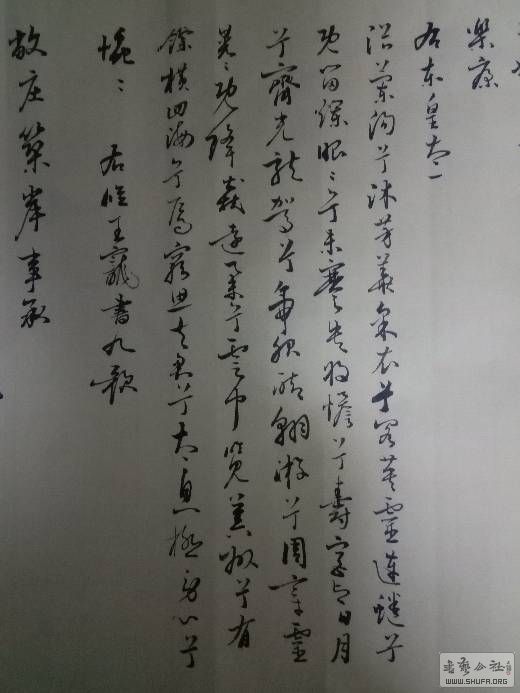 樂康
右東皇太一
浴蘭湯兮沐芳華采衣兮若英靈連蜷兮
既留爛昭〻兮未蹇央將憺兮壽宮与日月
兮齊光龍駕兮帝服聊翱游兮周章靈
皇〻既降猋遠舉兮雲中覽冀州兮有
餘橫四海兮焉窮思夫君兮太息極勞心兮
忡〻 右臨王寵書九歌
书艺公社
WWW.SHUFA.ORG